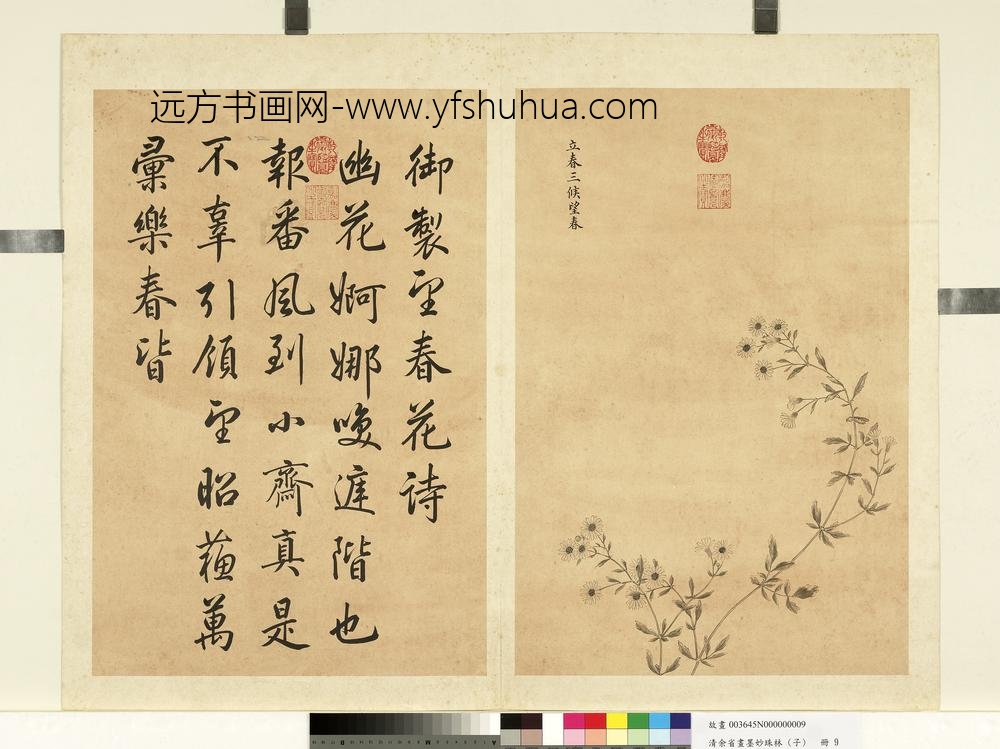 远方书画网-www.yfshuhua.com
立春三候望春
御製望春花詩
幽花婀娜暎庭階也
報番風到小齋真是
不辜引領望昭蘇萬
彙樂春皆
故畫 003645N000000009
清余省畫墨妙珠林（子） 冊 9